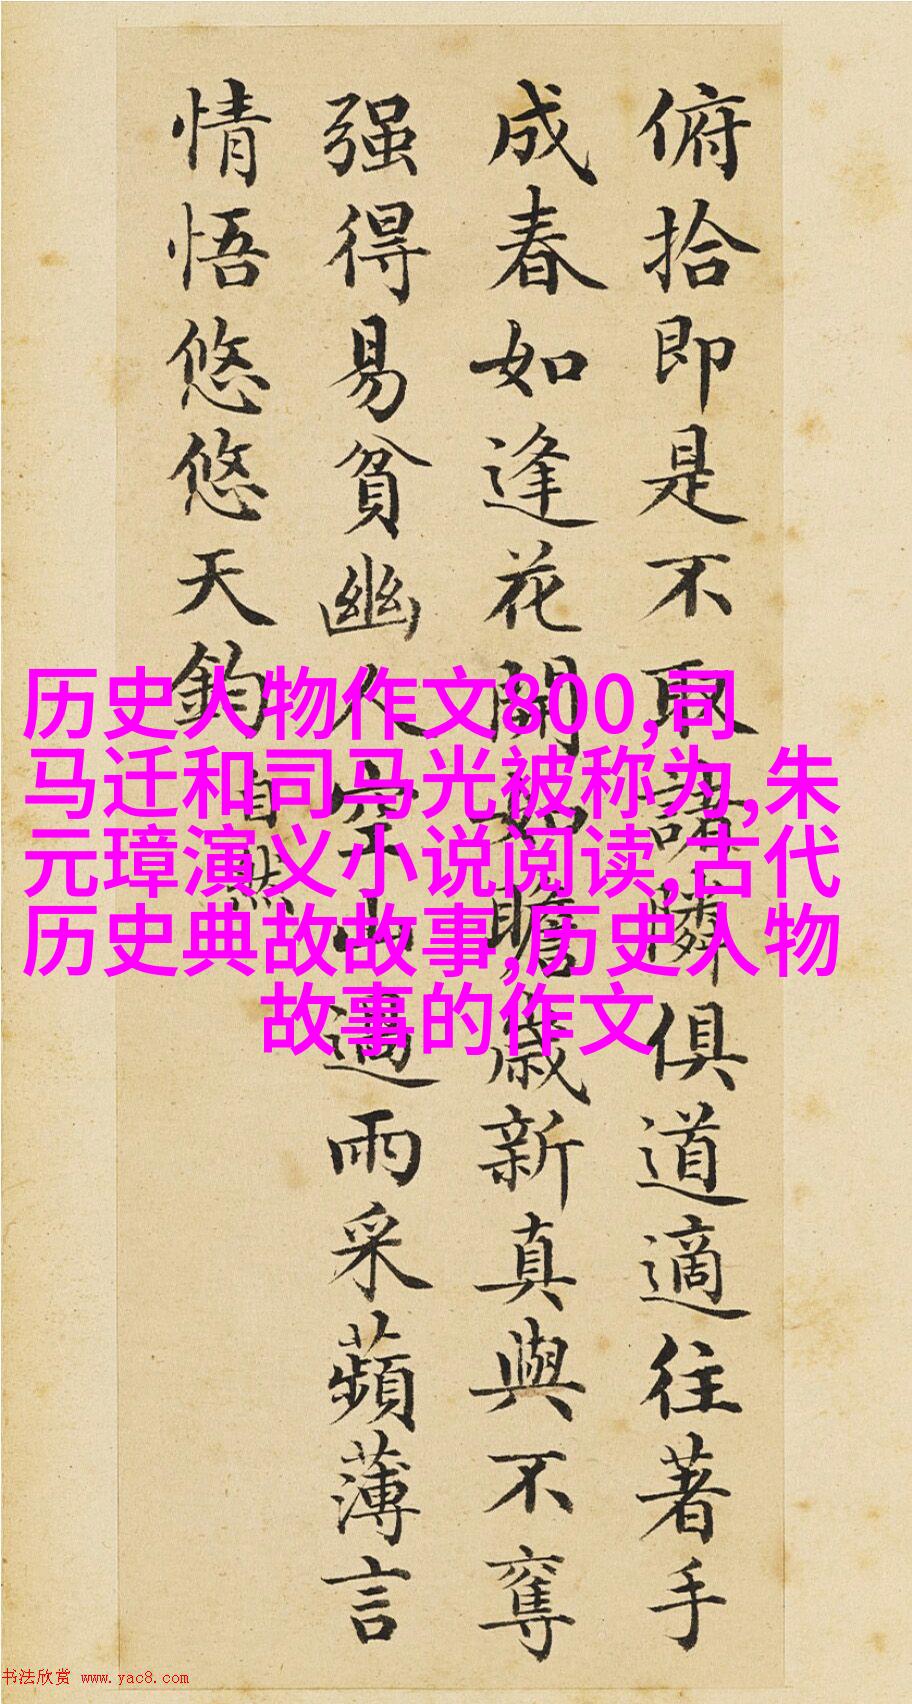 俯拾即是不取諸隣俱道適往著手
成春如逢花開如瞻歲新真與不奪
强得易貧幽人空山過雨采蘋薄言
情悟悠悠天鈞
自然
历史人物作文800,司
马迁和司马光被称为,朱
元璋演义小说阅读,古代
历史典故故事,历史人物
故事的作文
书法欣赏 www.yac8.com